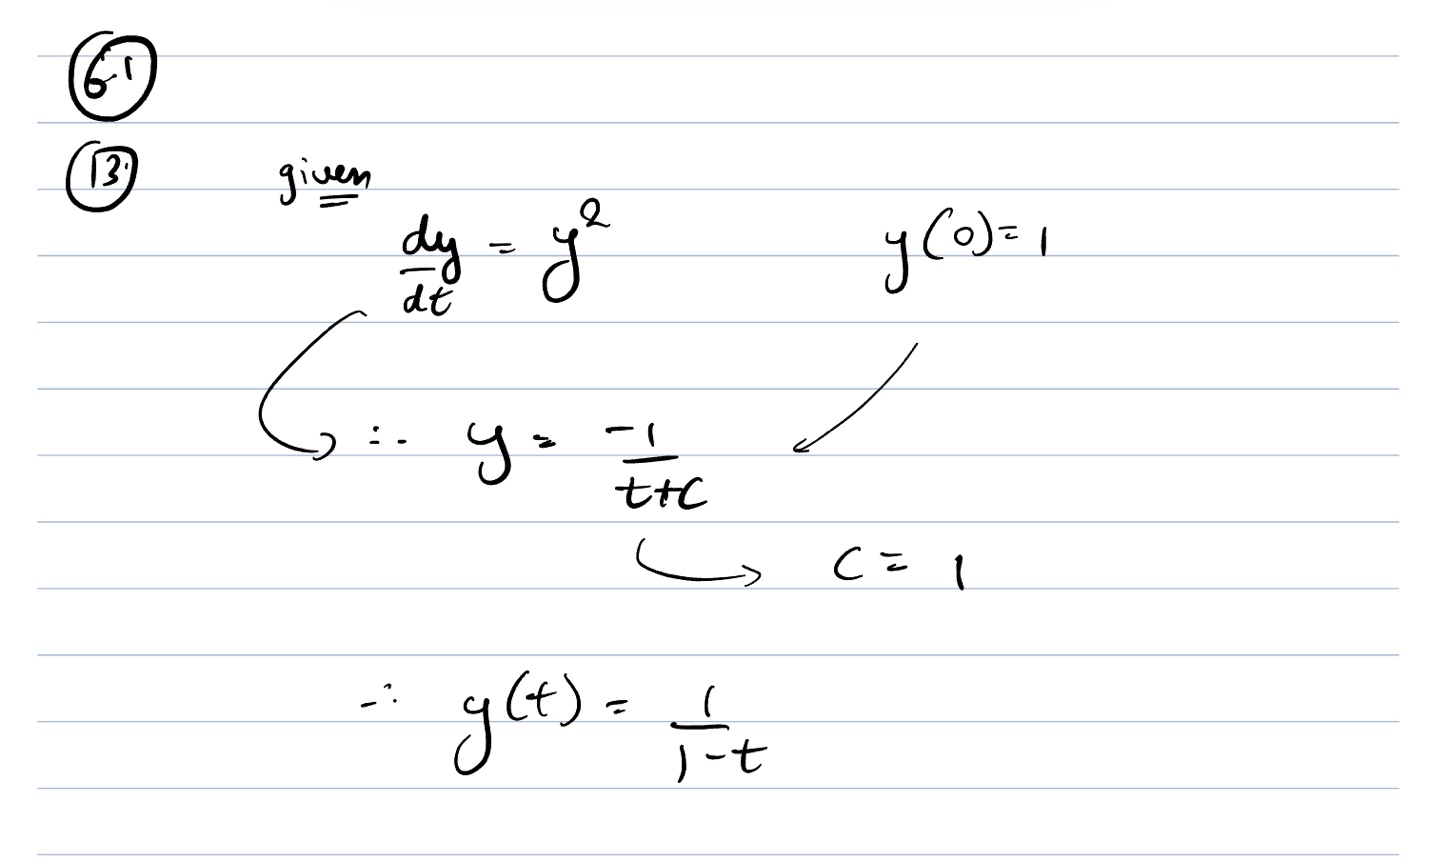 6.1
13.
given
dy/dt = y² y(0) = 1
∴ y = -1/(t+c)
c = 1
∴ y(t) = 1/(1-t)